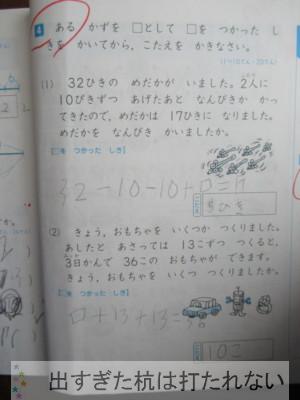 4 ある かずを □として □を つかった し
きを かいてから、こたえを かきなさい。
(1) 32ひきの めだかが いました。2人に
10ぴきずつ あげたあと なんびきか かっ
てきたので、めだかは 17ひきに なりました。
めだかを なんびき かいましたか。
[□を つかった しき]
32-10-10+□=17
こたえ 5ひき
(2) きょう、おもちゃを いくつか つくりました。
あしたと あさっては 13こずつ つくると、
3日かんで 36この おもちゃが できます。
きょう、おもちゃを いくつ つくりましたか。
[□を つかった しき]
□+13+13=36
こたえ 10こ
出すぎた杭は打たれない